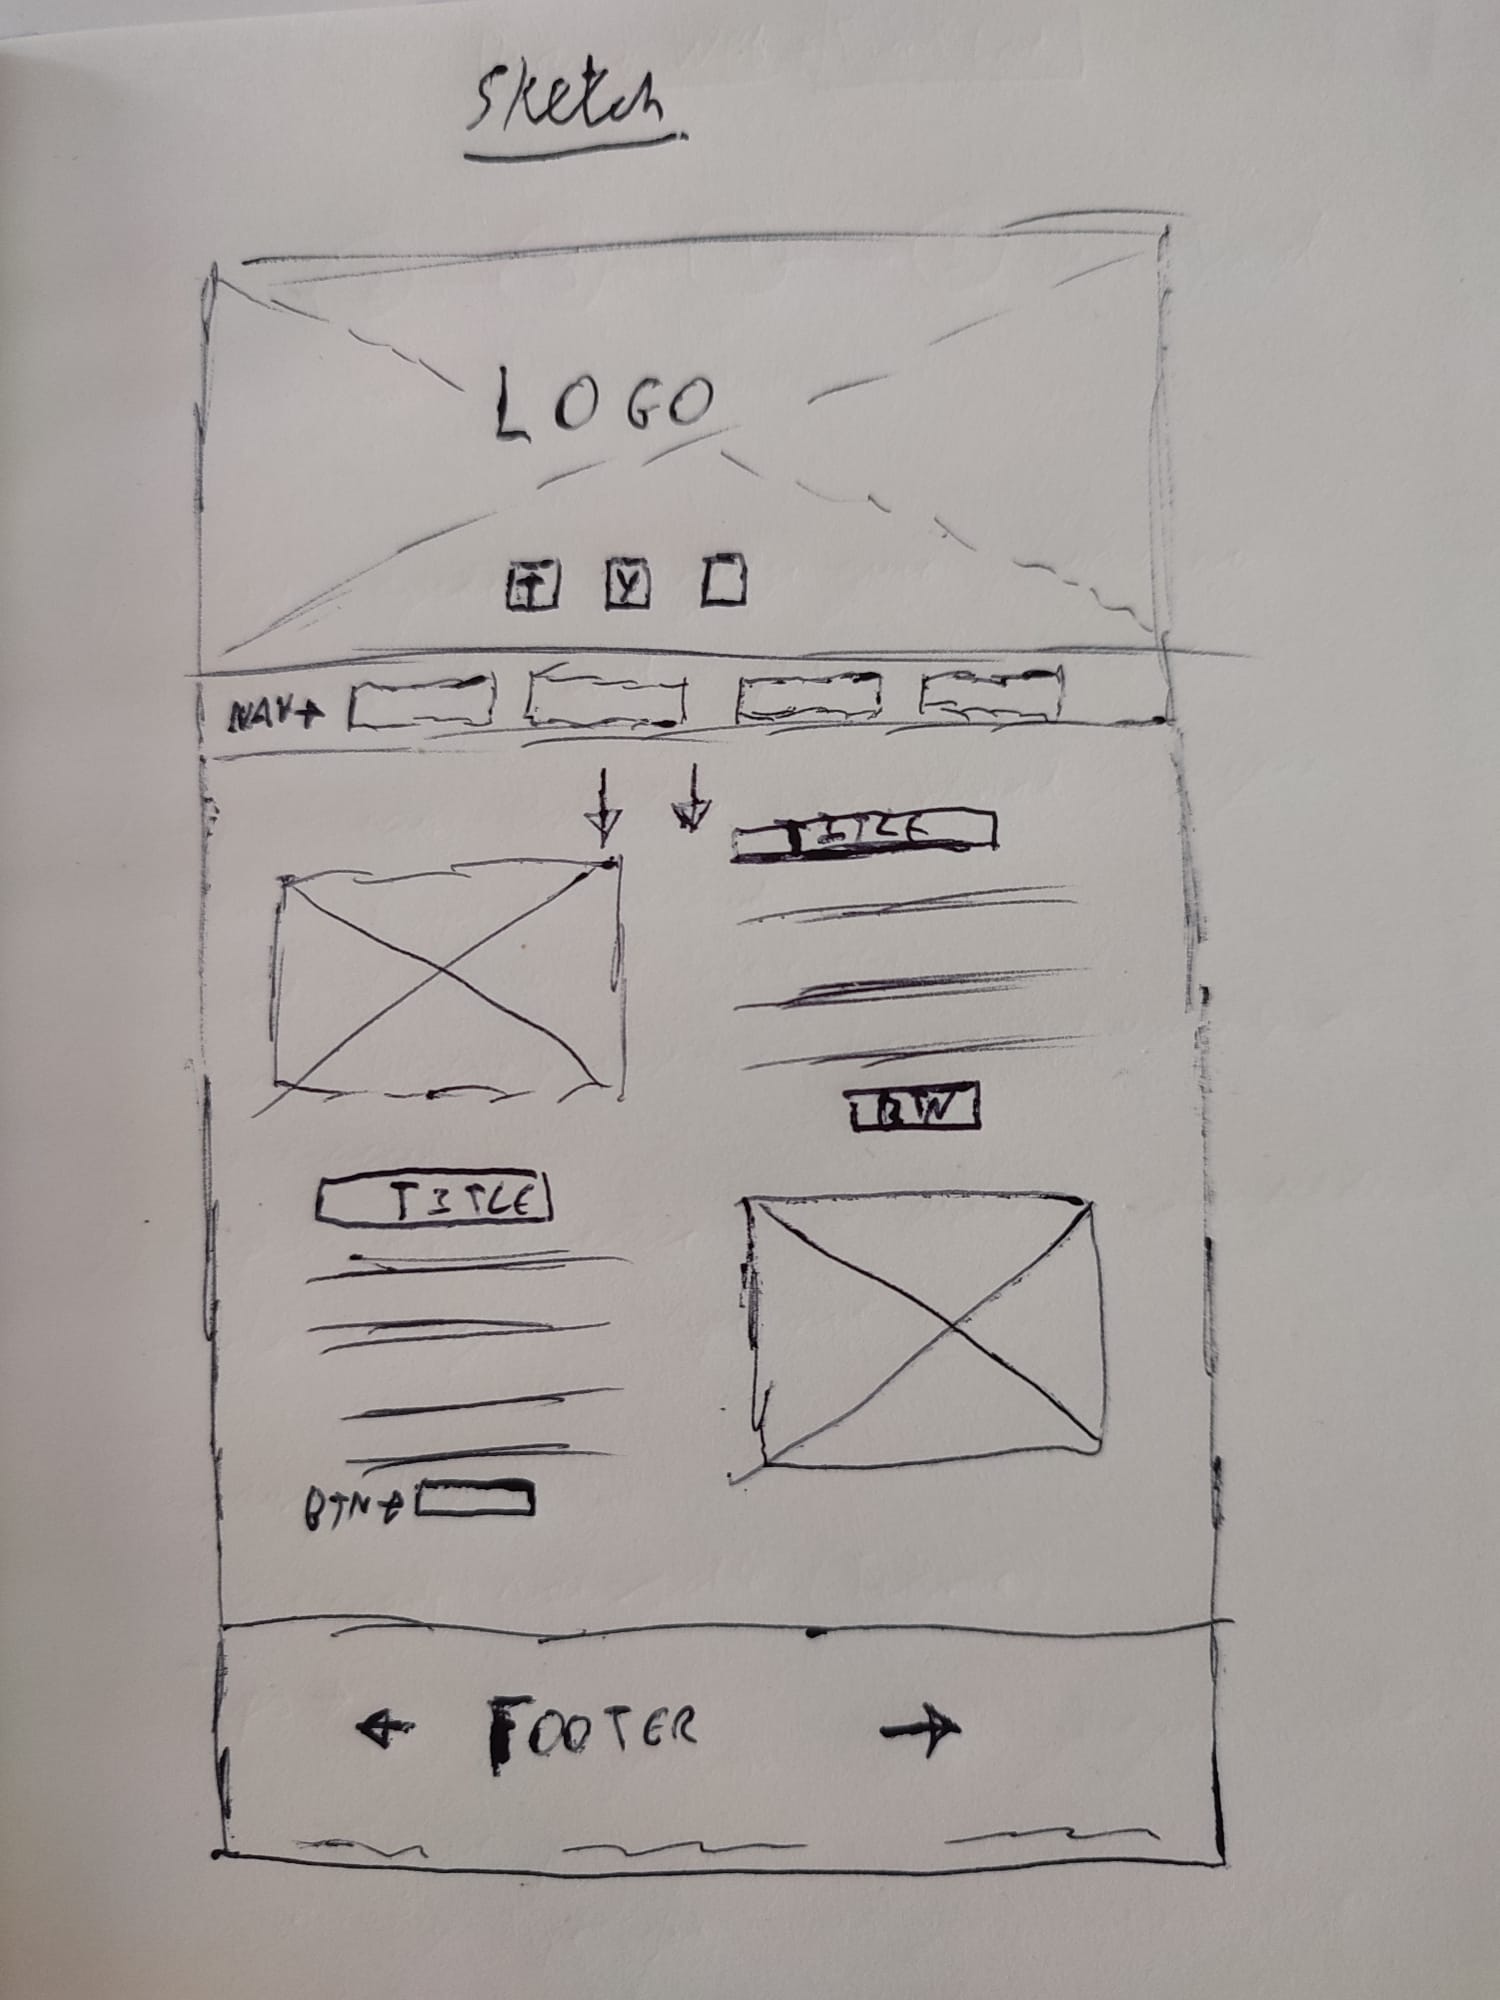 Sketch
LOGO
T Y
NAV
TITLE
BTN
TITLE
BTN
FOOTER